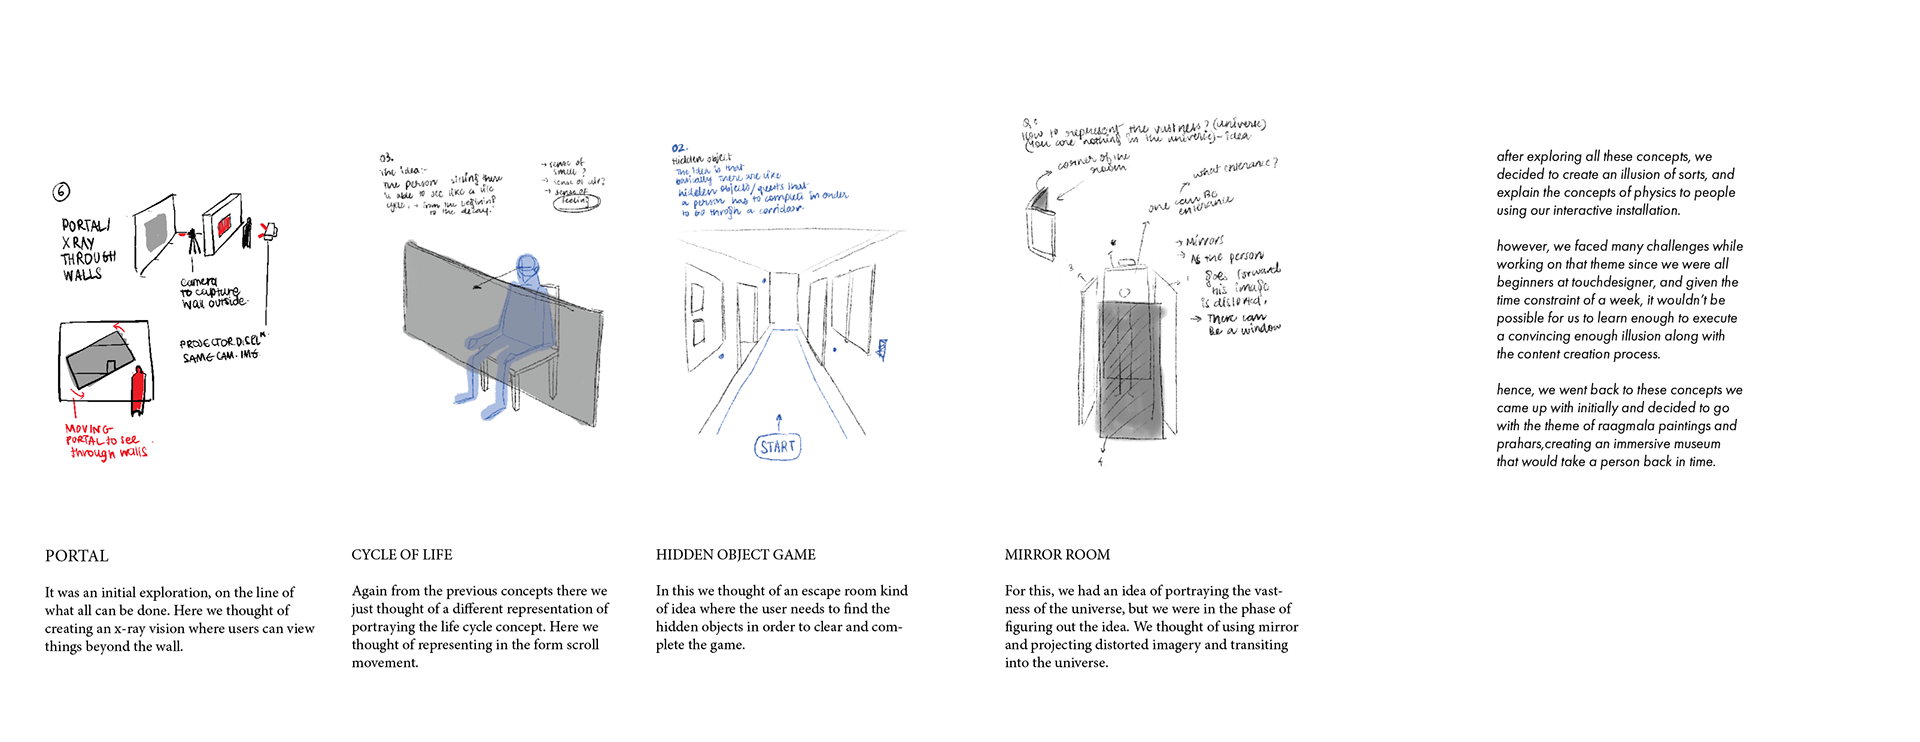 6
PORTAL/
X RAY
THROUGH
WALLS
camera
to capture
wall outside.
PROJECTOR
SAME CAM. IMG
MOVING
PORTAL to see
through walls
PORTAL
It was an initial exploration, on the line of
what all can be done. Here we thought of
creating an x-ray vision where users can view
things beyond the wall.
03.
The idea:-
The person sitting there
is able to see like a life
cycle, from the beginning
to the decay.
→ sense of
smell?
→ sense of air?
→ sense of
feeling
CYCLE OF LIFE
Again from the previous concepts there we
just thought of a different representation of
portraying the life cycle concept. Here we
thought of representing in the form scroll
movement.
02.
Hidden object
The idea is that
basically there are like
hidden objects/quests that
a person has to complete in order
to go through a corridoor.
START
HIDDEN OBJECT GAME
In this we thought of an escape room kind
of idea where the user needs to find the
hidden objects in order to clear and com-
plete the game.
Q:
How to represent the vastness? (universe)
(You are nothing in the universe) - idea
corner of the
room
what entrance?
one can be
entrance
→ Mirrors
→ As the person
goes forward
his image
is distorted.
→ There can
be a window
3
1
4
MIRROR ROOM
For this, we had an idea of portraying the vast-
ness of the universe, but we were in the phase of
figuring out the idea. We thought of using mirror
and projecting distorted imagery and transiting
into the universe.
after exploring all these concepts, we
decided to create an illusion of sorts, and
explain the concepts of physics to people
using our interactive installation.
however, we faced many challenges while
working on that theme since we were all
beginners at touchdesigner, and given the
time constraint of a week, it wouldn't be
possible for us to learn enough to execute
a convincing enough illusion along with
the content creation process.
hence, we went back to these concepts we
came up with initially and decided to go
with the theme of raagmala paintings and
prahars,creating an immersive museum
that would take a person back in time.